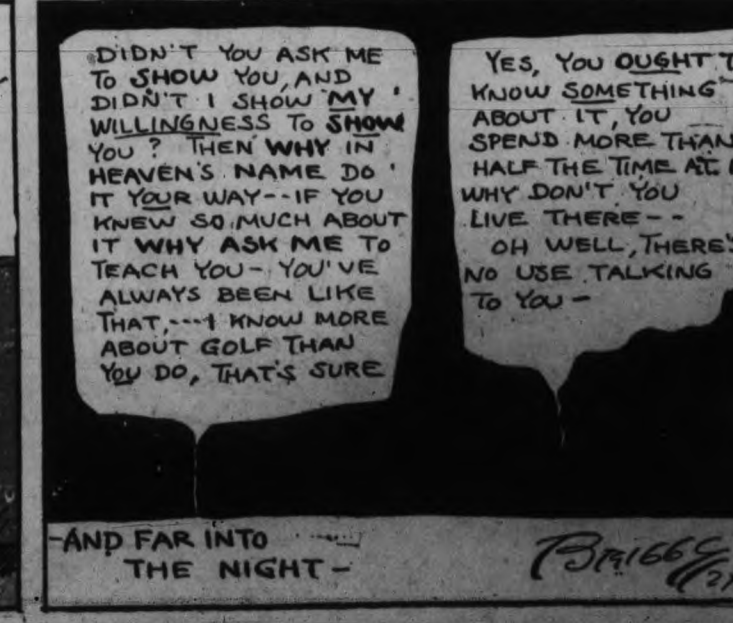 DIDN'T YOU ASK ME
TO SHOW YOU, AND
DIDN'T I SHOW MY
WILLINGNESS TO SHOW
YOU? THEN WHY IN
HEAVEN'S NAME DO
IT YOUR WAY--IF YOU
KNEW SO MUCH ABOUT
IT WHY ASK ME TO
TEACH YOU- YOU'VE
ALWAYS BEEN LIKE
THAT,---I KNOW MORE
ABOUT GOLF THAN
YOU DO, THAT'S SURE
YES, YOU OUGHT T
KNOW SOMETHING
ABOUT IT, YOU
SPEND MORE THAN
HALF THE TIME AT
WHY DON'T YOU
LIVE THERE--
OH WELL, THERE'S
NO USE TALKING
TO YOU-
-AND FAR INTO
THE NIGHT-
BRIGGS